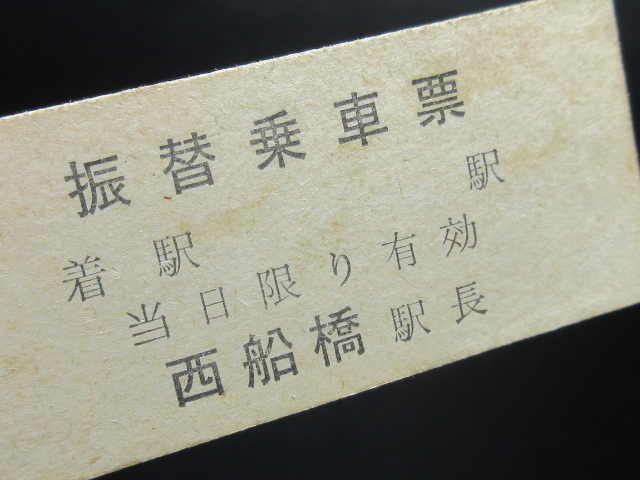 振替乗車票
着駅 駅
当日限り有効
西船橋駅長